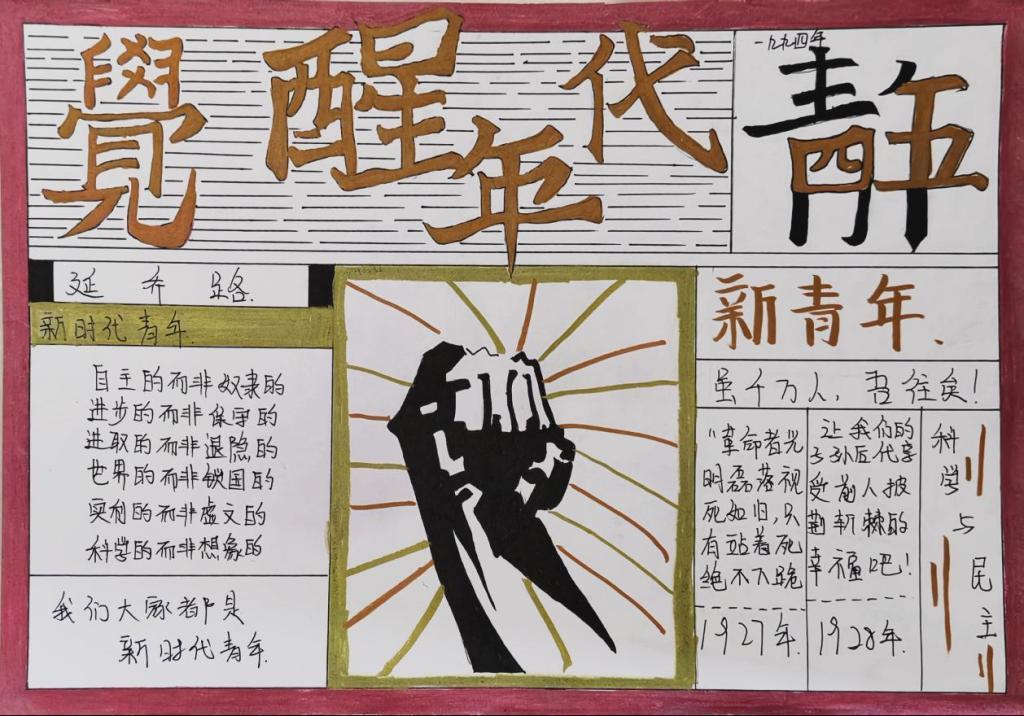 覺醒年代
一九九四年
青
五
四
延乔路
新时代青年
新青年
自主的而非奴隶的
进步的而非保守的
进取的而非退隐的
世界的而非锁国的
实利的而非虚文的
科学的而非想象的
我们大家都是
新时代青年
虽千万人，吾往矣！
“革命者光
明磊落视
死如归，只
有站着死
绝不下跪
1927年
让我们的
子孙后代享
受前人披
荆斩棘的
幸福吧！
1928年
科学与民主